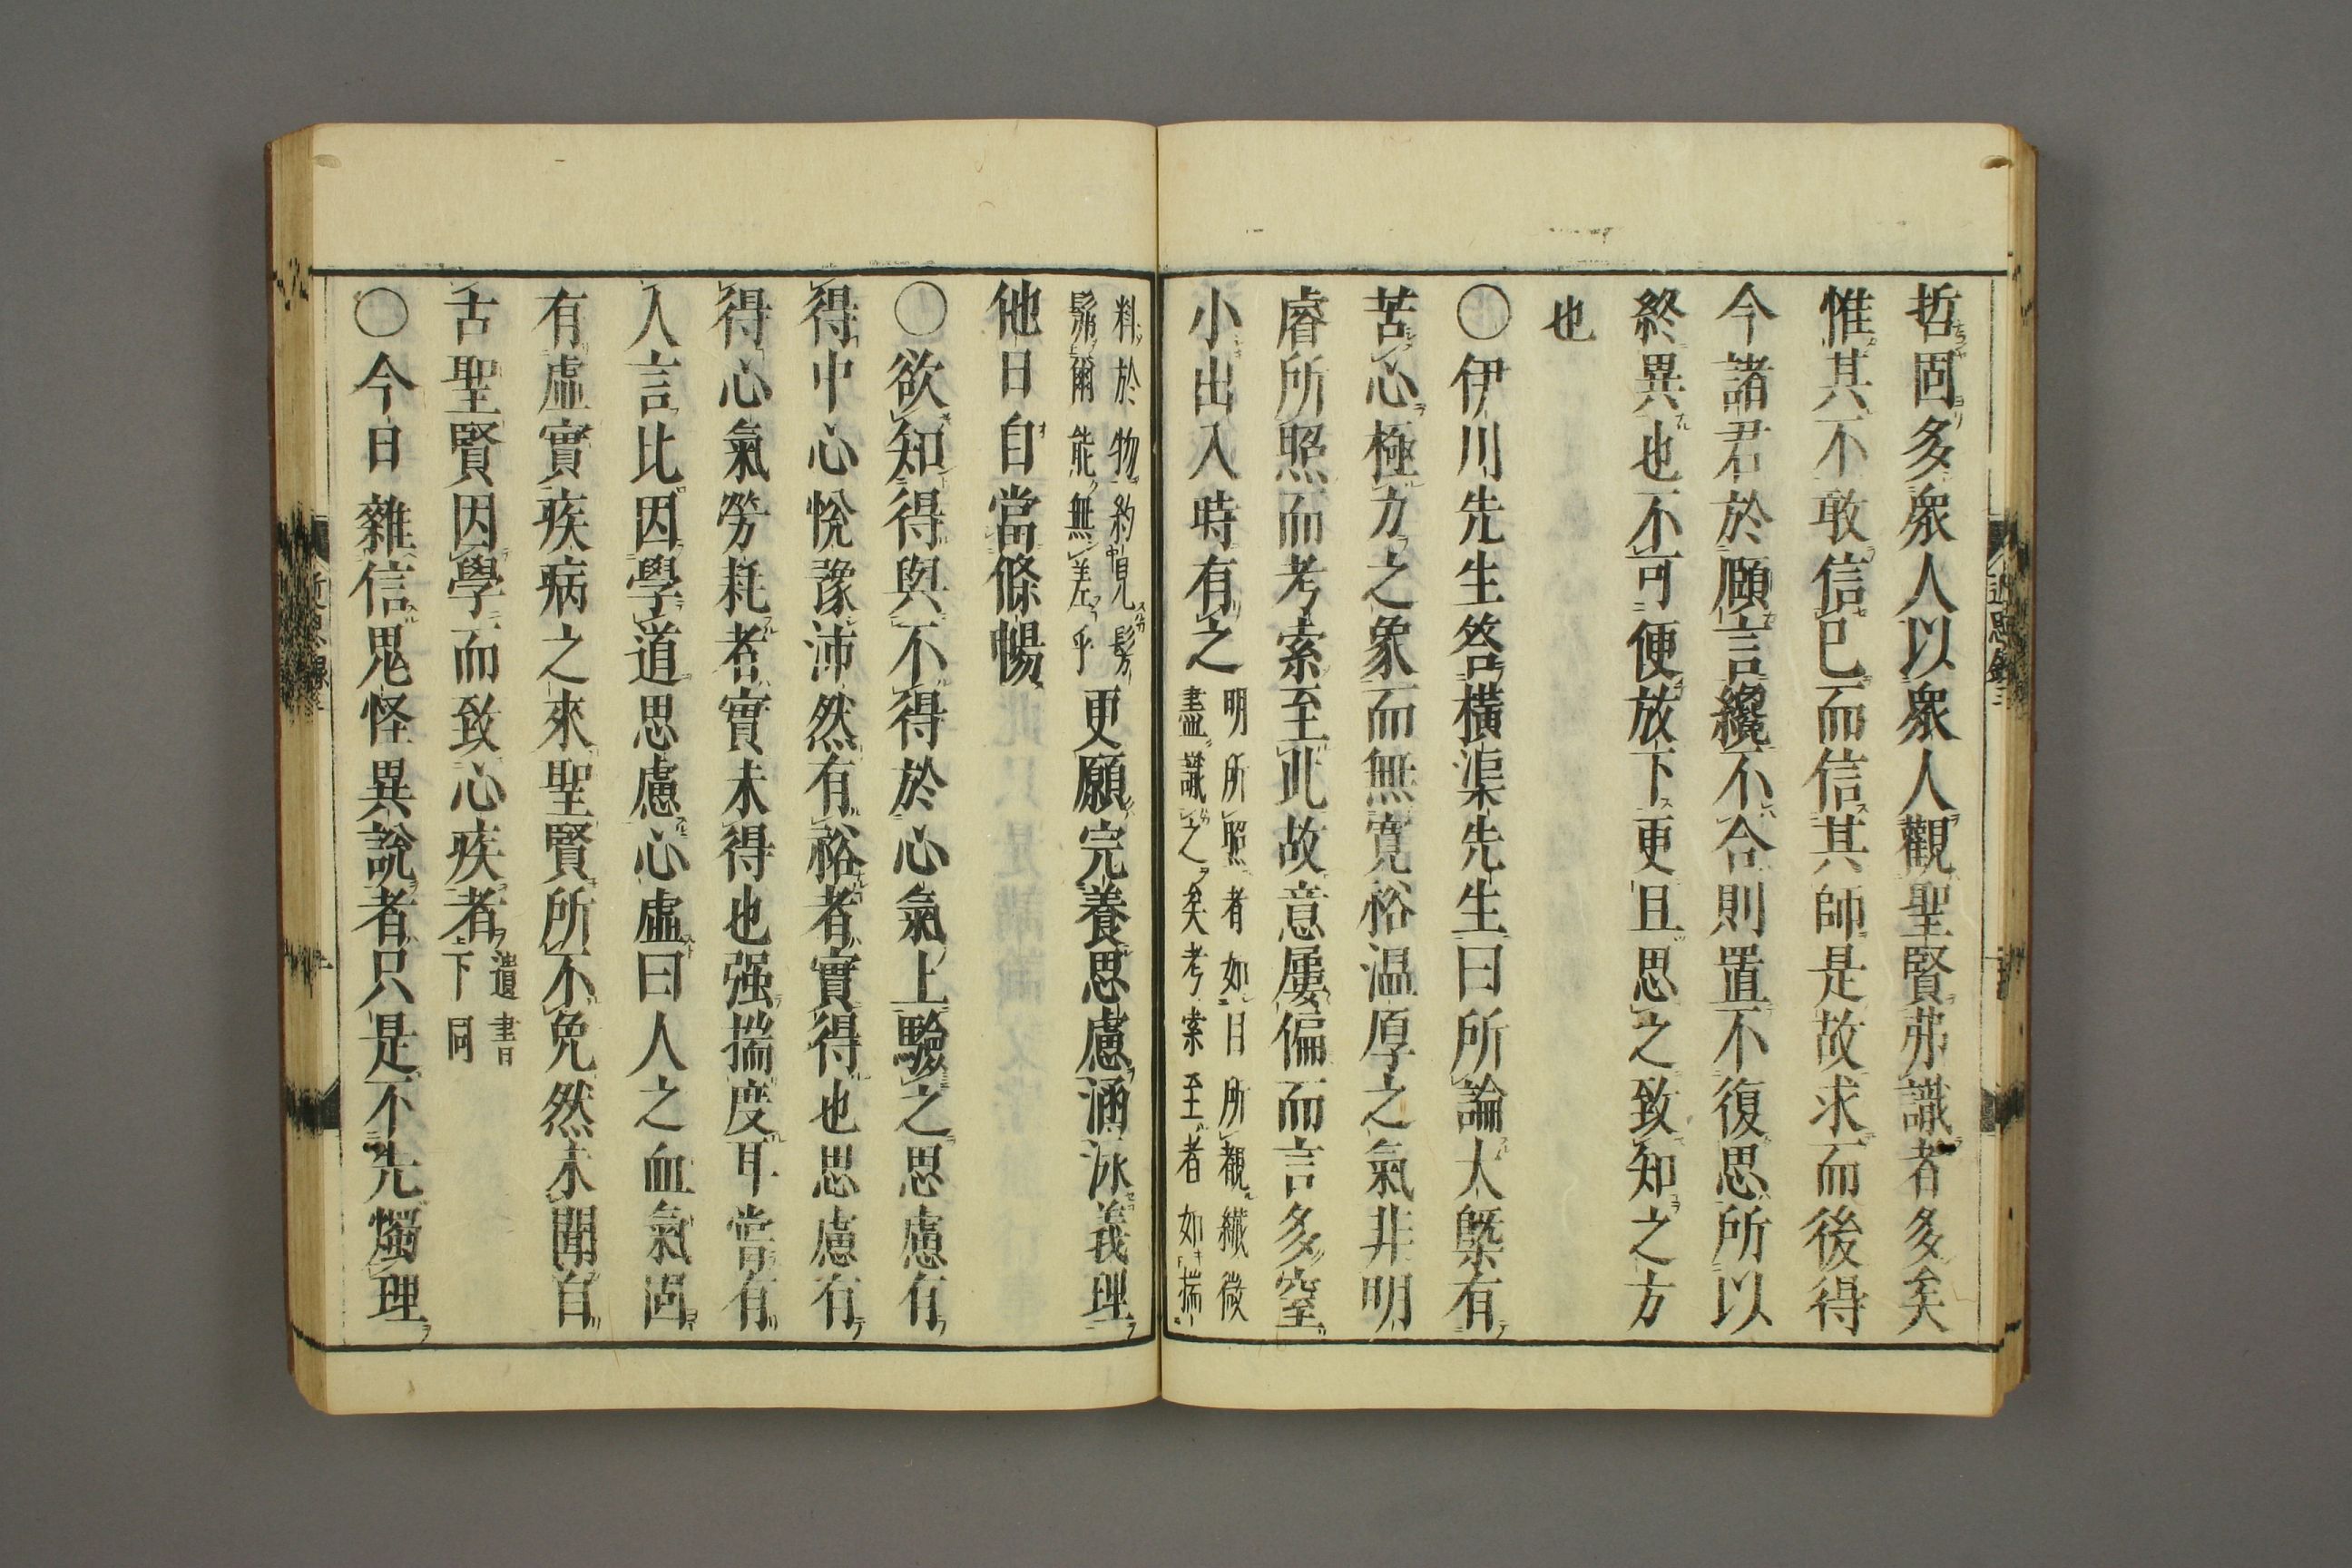 哲固多衆人以衆人觀聖賢弗識者多矣
惟其不敢信己而信其師是故求而後得
今諸君於頤言纔不合則置不復思所以
終異也不可便放下更且思之致知之方
也
〇伊川先生答橫渠先生曰所論大槩有
苦心極力之象而無寬裕温厚之氣非明
睿所照而考索至此故意屢偏而言多窒
小出入時有之
明所照者如目所觀纖微
盡識之矣考索至者如揣
料於物約見髣
髴爾能無差乎
更願完養思慮涵泳義理
他日自當條暢
〇欲知得與不得於心氣上驗之思慮有
得中心悅豫沛然有裕者實得也思慮有
得心氣勞耗者實未得也强揣度耳嘗有
人言比因學道思慮心虛曰人之血氣固
有虛實疾病之來聖賢所不免然未聞自
古聖賢因學而致心疾者
遺書
下同
〇今日雜信鬼怪異說者只是不先燭理
近思錄三